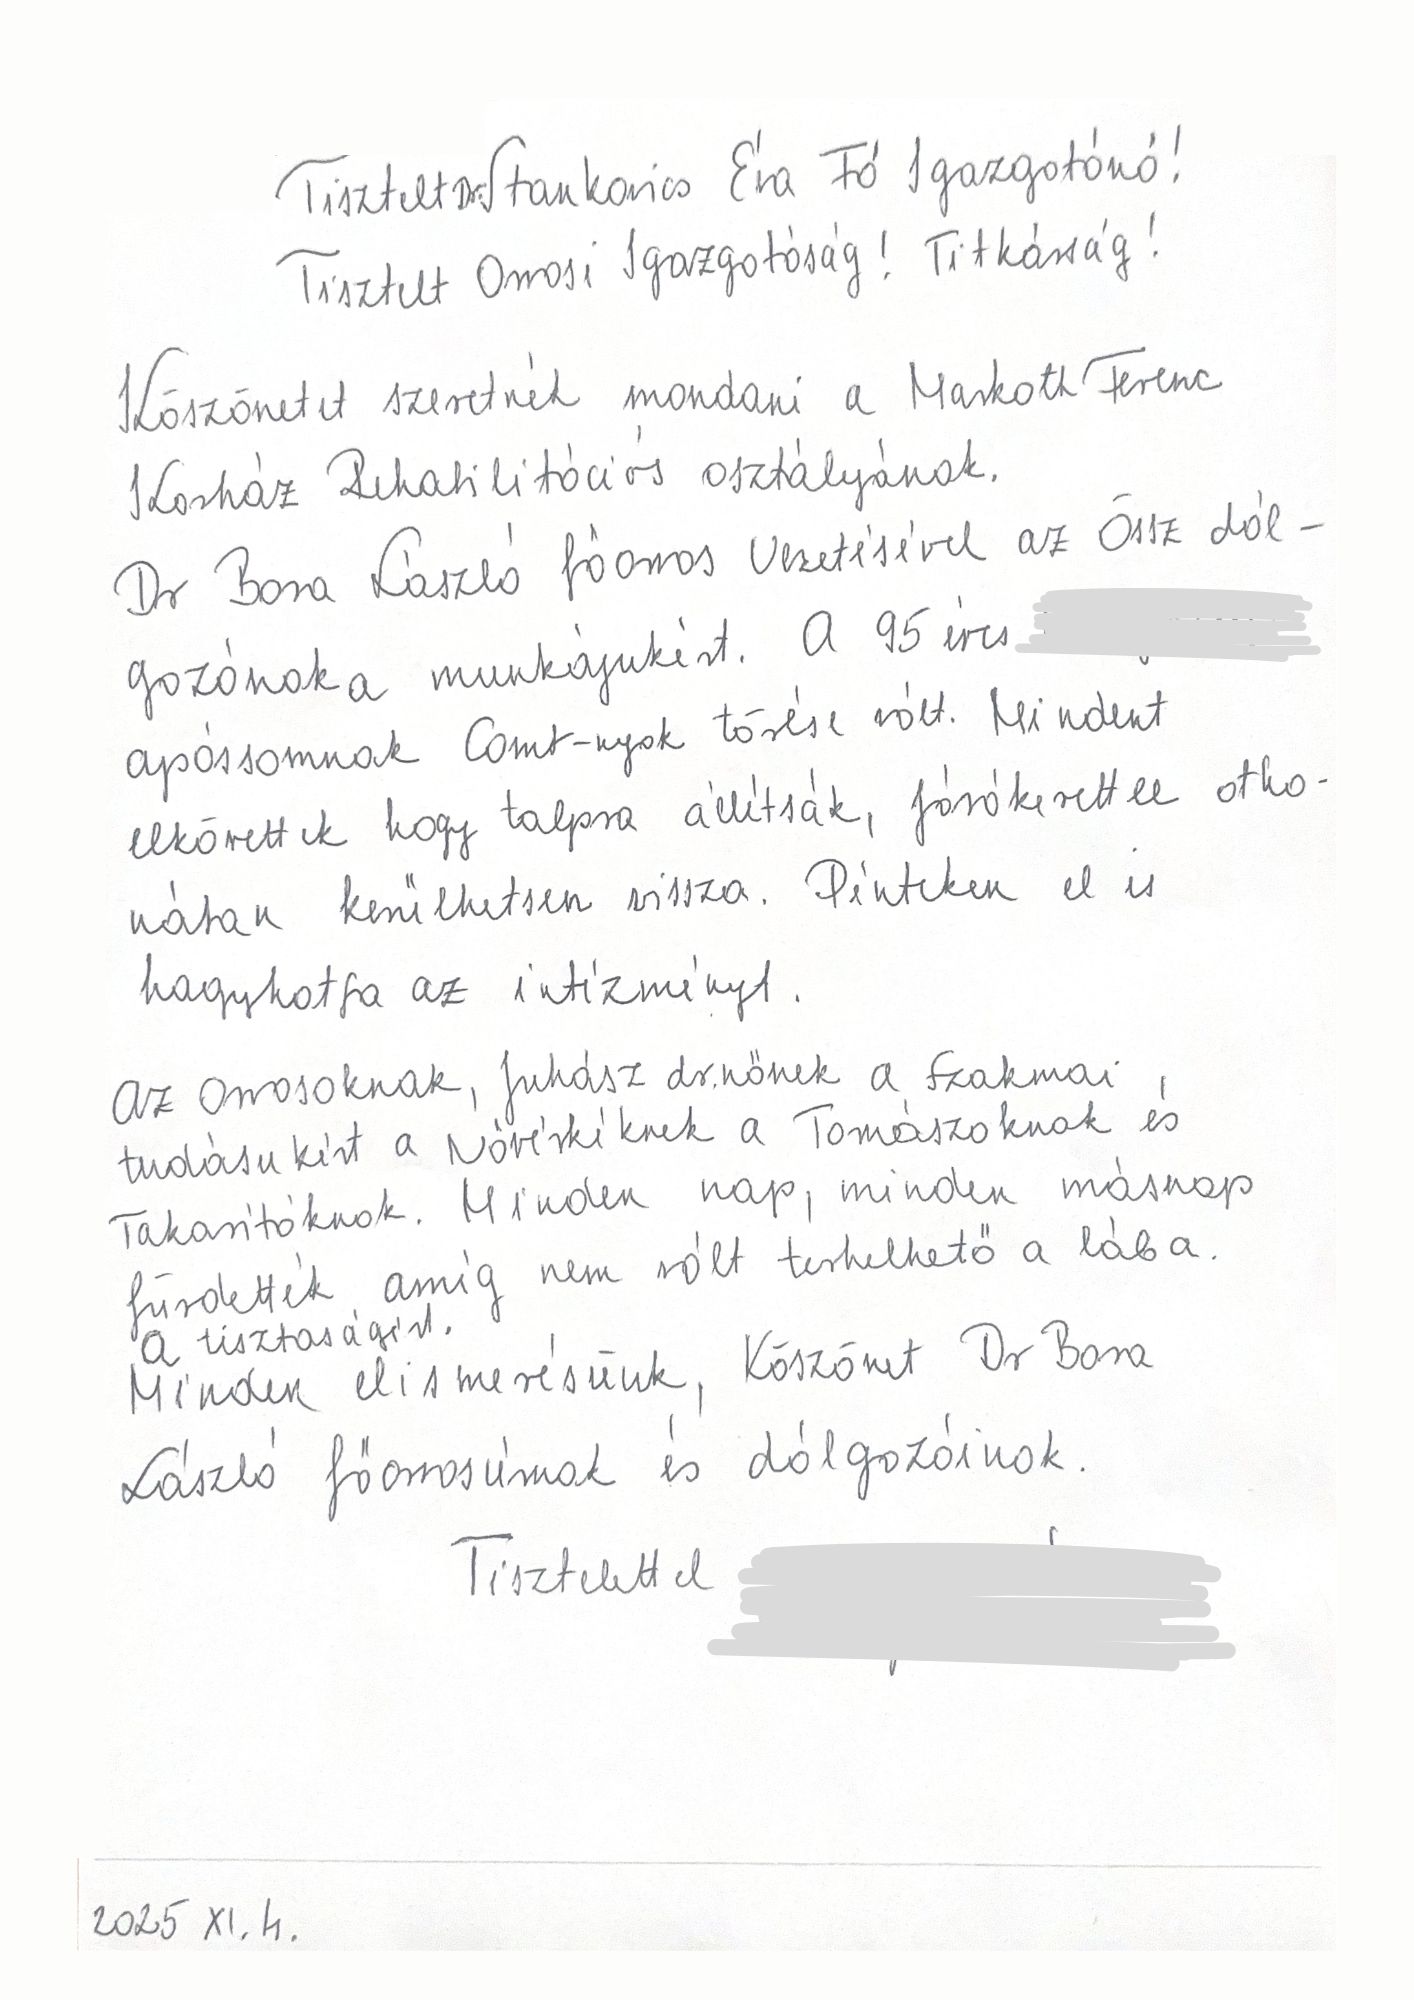 Tisztelt Dr. Stankovics Éva Fő Igazgatónő!
Tisztelt Orvosi Igazgatóság! Titkárság!
Köszönetet szeretnék mondani a Markoth Ferenc
Kórház Rehabilitációs osztályának.
Dr Bora László főorvos vezetésével az Össz dól-
gozónak a munkájukért. A 95 éves
apóssomnak Comb-nyak törése vólt. Mindent
elkövettek hogy talpra állítsák, járókerettel otho-
nában kerülhetsen vissza. Pénteken el is
hagyhatja az intézményt.
Az orvosoknak, Juhász dr.nőnek a szakmai,
tudásukért a Nővérkéknek a Tornászoknak és
Takarítóknak. Minden nap, minden másnap
fürdették amíg nem vólt terhelhető a lába.
a tisztaságért.
Minden elismerésünk, Köszönet Dr Bora
László főorvosúrnak és dólgozóinak.
Tisztelettel
2025 XI. 4.